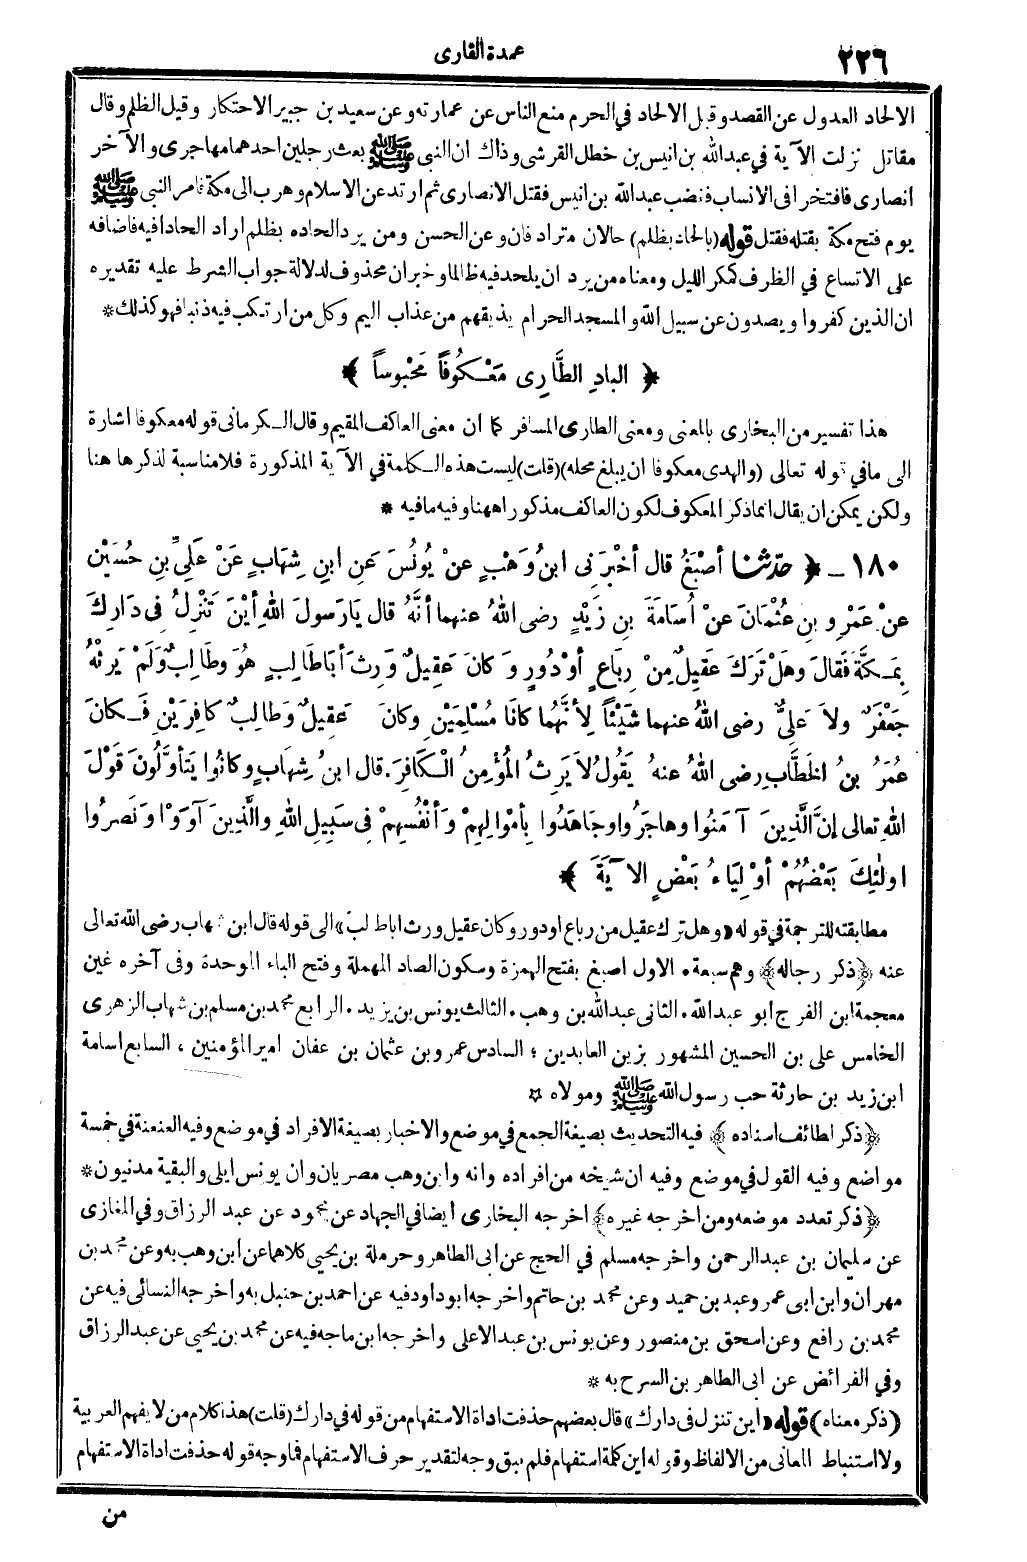 ٢٢٦
عمدة القارى
الالحاد العدول عن القصد وقيل الالحاد في الحرم منع الناس عن عمارته وعن سعيد بن جبير الاحتكار وقيل الظلم وقال
مقاتل نزلت الآية في عبدالله بن انيس بن خطل القرشى وذاك ان النبى ﷺ بعث رجلين احدهما مهاجرى والآخر
انصارى فافتخرا فى الانساب فغضب عبدالله بن انيس فقتل الانصارى ثم ارتد عن الاسلام وهرب الى مكة فامر النبى ﷺ
يوم فتح مكة بقتله فقتل قوله (بالحاد بظلم) حالان مترادفان وعن الحسن ومن يرد الحاده بظلم اراد الحادا فيه فاضافه
على الاتساع في الظرف كمكر الليل ومعناه من يرد ان يلحد فيه ظالما وخبر ان محذوف لدلالة جواب الشرط عليه تقديره
ان الذين كفروا ويصدون عن سبيل الله والمسجد الحرام يذيقهم من عذاب اليم وكل من ارتكب فيه ذنبا فهو كذلك *
﴿ البادِ الطَّارِى مَعْكُوفًا مَحْبُوساً ﴾
هذا تفسير من البخارى بالمعنى ومعنى الطارى المسافر كما ان معنى العاكف المقيم وقال الكرمانى قوله معكوفا اشارة
الى ما في قوله تعالى (والهدى معكوفا ان يبلغ محله) (قلت) ليست هذه الكلمة في الآية المذكورة فلا مناسبة لذكرها هنا
ولكن يمكن ان يقال انما ذكر المعكوف لكون العاكف مذكورا ههنا وفيه ما فيه *
١٨٠ ـ ﴿ حدّثنا أصْبَغُ قال أخْبَرَنى ابنُ وَهْبٍ عنْ يُونُسَ عَنِ ابنِ شِهَابٍ عَنْ عَلِيِّ بنِ حُسَيْنٍ
عنْ عَمْرِو بنِ عُثْمَانَ عنْ أُسَامَةَ بنِ زَيْدٍ رضى اللهُ عنهما أنَّهُ قال يَارَسولَ اللهِ أيْنَ تَنْزِلُ فِى دَارِكَ
بِمَكَّةَ فَقالَ وهَلْ تَرَكَ عَقِيلٌ مِنْ رِباعٍ أوْ دُورٍ وَكانَ عَقِيلٌ وَرِثَ أبَا طَالِبٍ هُوَ وطَالِبٌ وَلَمْ يَرِثْهُ
جَعْفَرٌ ولاَ عَلِيٌّ رضى اللهُ عنهما شَيْئاً لِأنَّهُما كانَا مُسْلِمَيْنِ وكانَ عَقِيلٌ وَطَالِبٌ كافِرَيْنِ فَكانَ
عُمَرُ بنُ الخَطَّابِ رضى اللهُ عنهُ يَقُولُ لاَ يَرِثُ المُؤْمِنُ الْكافِرَ. قال ابنُ شِهَابٍ وكانُوا يَتأوَّلُونَ قَوْلَ
اللهِ تعالى إنَّ الَّذِينَ آمَنُوا وهاجَرُوا وجَاهَدُوا بِأمْوَالِهِمْ وَأنْفُسِهِمْ فِى سَبِيلِ اللهِ والَّذِينَ آوَوْا وَنَصَرُوا
اولٰئِكَ بَعْضُهُمْ أوْلِيَاءُ بَعْضٍ الآيَةَ ﴾
مطابقته للترجمة في قوله «وهل ترك عقيل من رباع او دور وكان عقيل ورث اباطالب» الى قوله قال ابن شهاب رضى الله تعالى
عنه ﴿ذكر رجاله﴾ وهم سبعة. الاول اصبغ بفتح الهمزة وسكون الصاد المهملة وفتح الباء الموحدة وفى آخره غين
معجمة ابن الفرج ابو عبدالله. الثانى عبدالله بن وهب. الثالث يونس بن يزيد. الرابع محمد بن مسلم بن شهاب الزهرى
الخامس على بن الحسين المشهور بزين العابدين ؛ السادس عمرو بن عثمان بن عفان امير المؤمنين ، السابع اسامة
ابن زيد بن حارثة حب رسول الله ﷺ ومولاه ☆
﴿ذكر لطائف اسناده﴾ فيه التحديث بصيغة الجمع في موضع والاخبار بصيغة الافراد في موضع وفيه العنعنة في خمسة
مواضع وفيه القول في موضع وفيه ان شيخه من افراده وانه وابن وهب مصريان وان يونس ايلى والبقية مدنيون *
﴿ذكر تعدد موضعه ومن اخرجه غيره﴾ اخرجه البخارى ايضا في الجهاد عن محمود عن عبد الرزاق وفي المغازى
عن سليمان بن عبد الرحمن واخرجه مسلم في الحج عن ابى الطاهر وحرملة بن يحيى كلاهما عن ابن وهب به وعن محمد بن
مهران وابن ابى عمر وعبد بن حميد وعن محمد بن حاتم واخرجه ابو داود فيه عن احمد بن حنبل به واخرجه النسائى فيه عن
محمد بن رافع وعن اسحق بن منصور وعن يونس بن عبد الاعلى واخرجه ابن ماجه فيه عن محمد بن يحيى عن عبد الرزاق
وفي الفرائض عن ابى الطاهر بن السرح به *
(ذكر معناه) قوله «اين تنزل فى دارك» قال بعضهم حذفت اداة الاستفهام من قوله في دارك (قلت) هذا كلام من لا يفهم العربية
ولا استنباط المعانى من الالفاظ وقوله اين كلمة استفهام فلم يبق وجه لتقدير حرف الاستفهام فما وجه قوله حذفت اداة الاستفهام
من